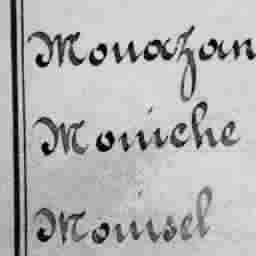 Mouazan
Mouiche
Mouisel